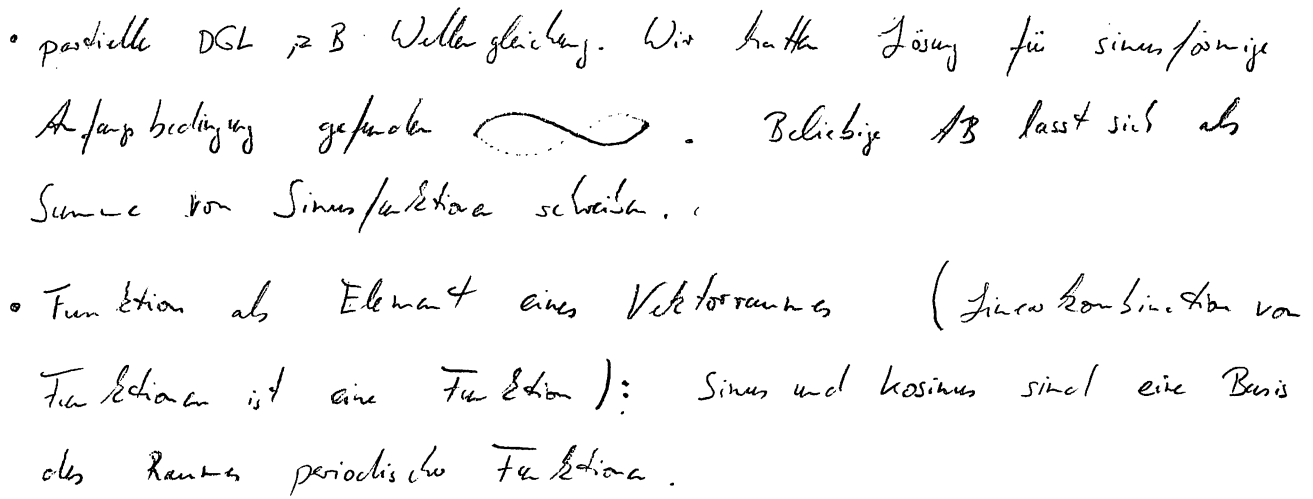 • partielle DGL, z B Wellengleichung. Wir hatten Lösung für sinusförmige
Anfangsbedingung gefunden . Beliebige AB lässt sich als
Summe von Sinusfunktionen schreiben.
• Funktion als Element eines Vektorraumes (Linearkombination von
Funktionen ist eine Funktion): Sinus und Kosinus sind eine Basis
des Raumes periodischer Funktionen.